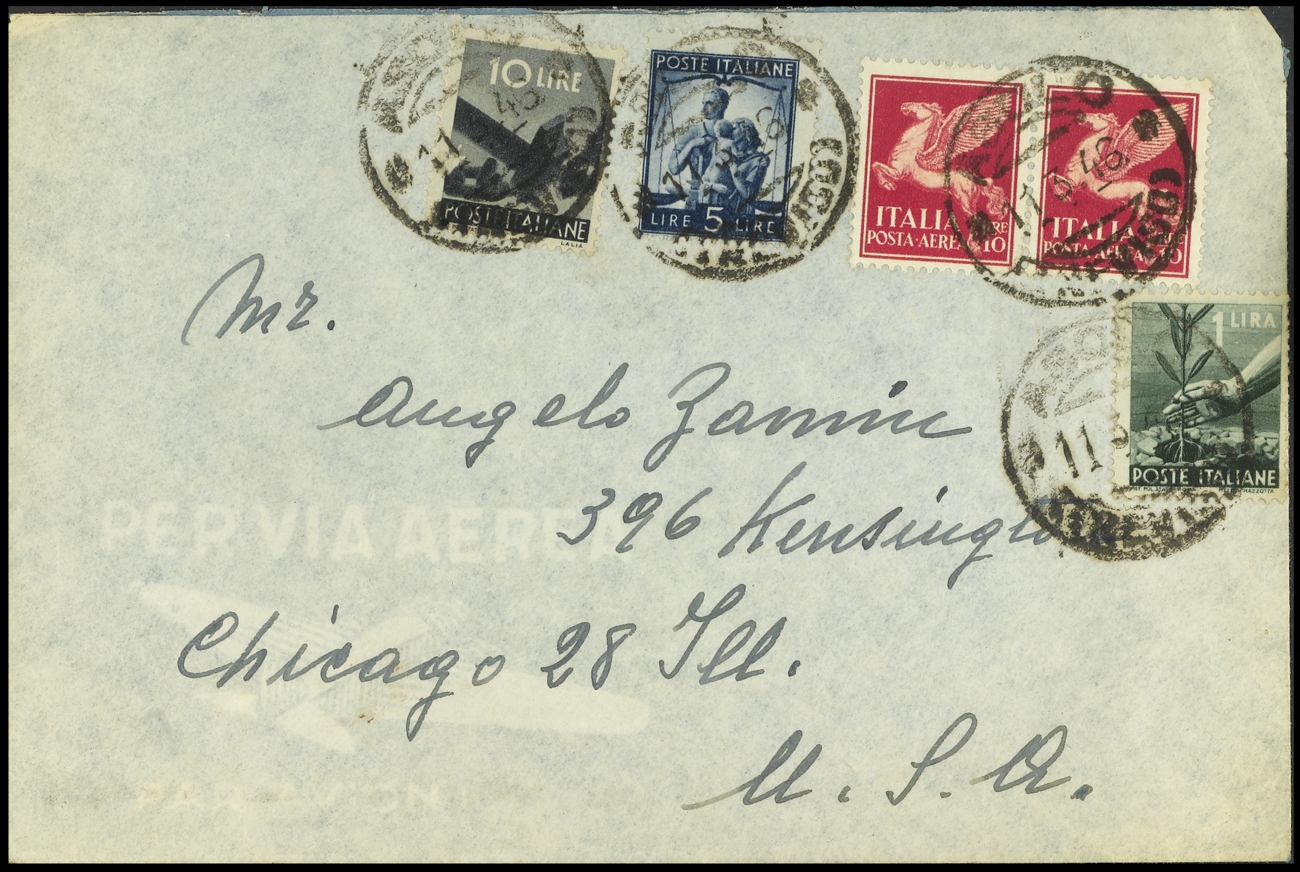 10 LIRE
POSTE ITALIANE
LALIA
POSTE ITALIANE
LIRE 5 LIRE
ITALIA
POSTA-AEREA
10
ITALIA
POSTA-AEREA
11 3 48
(TREVISO)
1 LIRA
POSTE ITALIANE
MAZZOTTA
Mr.
Angelo Zamin
396 Kensington
PER VIA AEREA
Chicago 28 Ill.
U. S. A.
PAR AVION